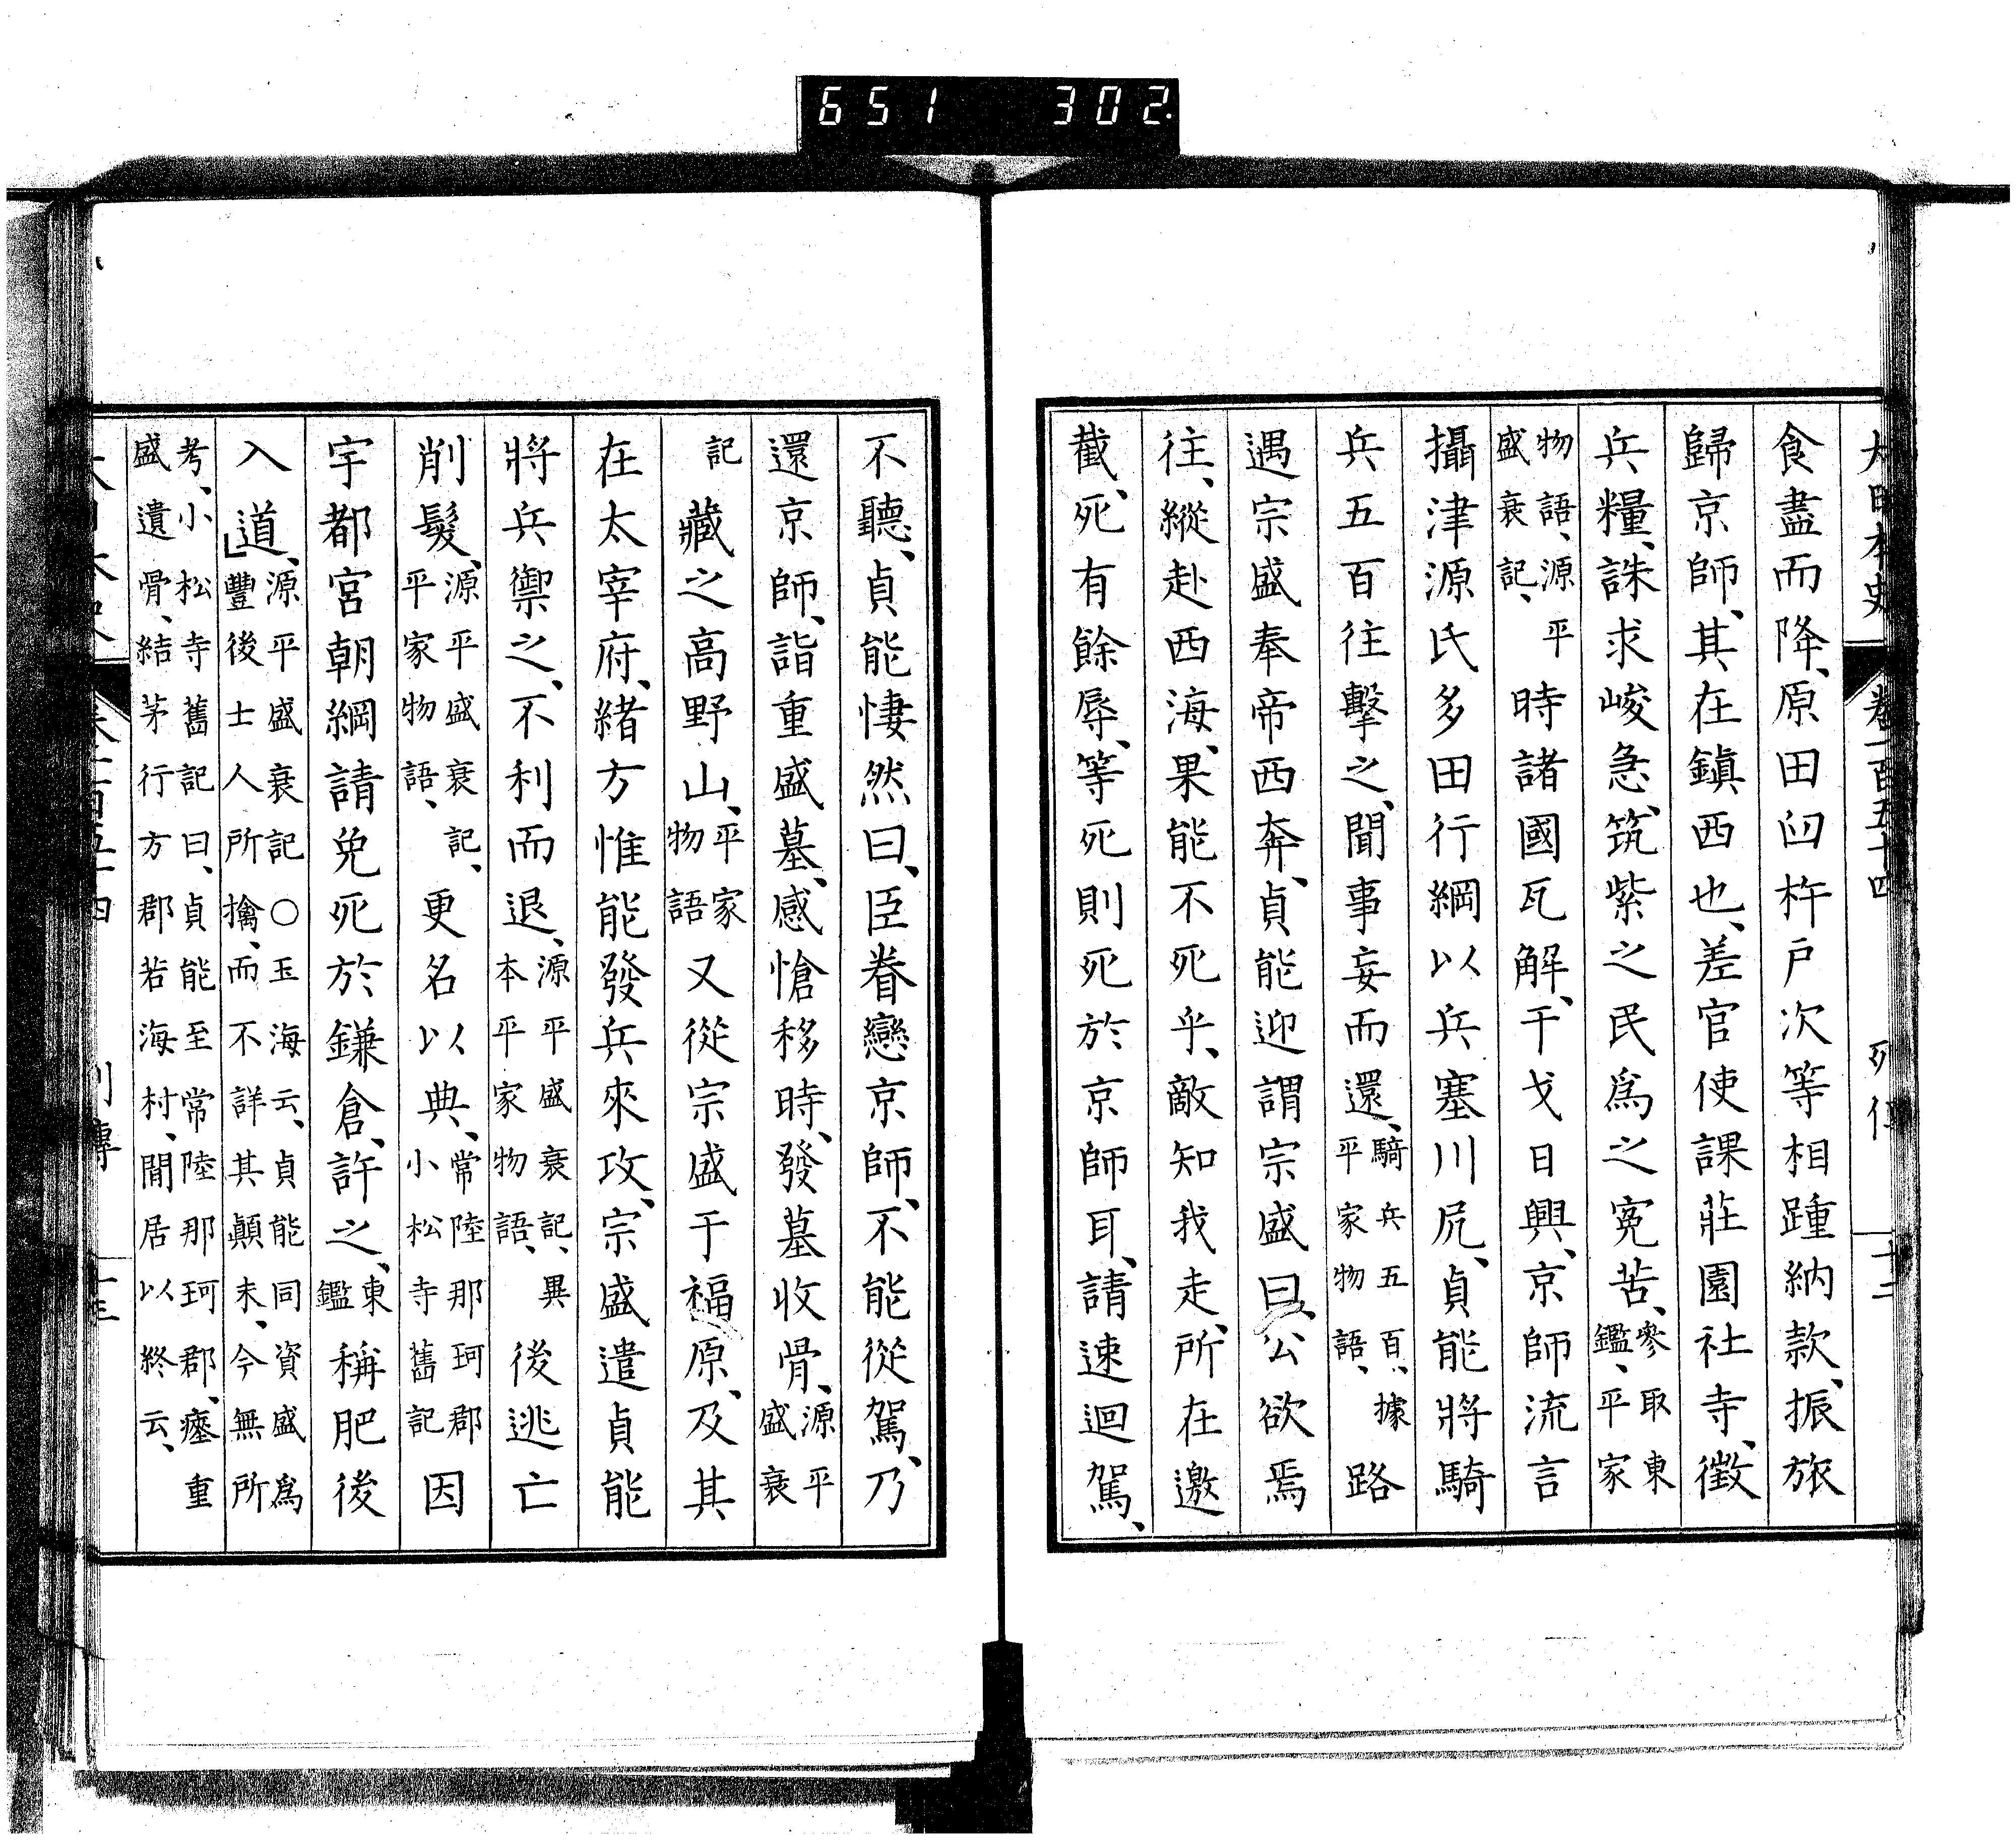 651 302
大日本史 卷一百五十四 列傳 十二
食盡而降、原田臼杵戶次等相踵納款、振旅
歸京師、其在鎭西也、差官使課莊園社寺、徵
兵糧、誅求峻急、筑紫之民爲之寃苦、參取東鑑、平家
物語、源平盛衰記、時諸國瓦解、干戈日興、京師流言
攝津源氏多田行綱以兵塞川尻、貞能將騎
兵五百往擊之、聞事妄而還、騎兵五百、據平家物語、路
遇宗盛奉帝西奔、貞能迎謂宗盛曰、公欲焉
往、縱赴西海、果能不死乎、敵知我走、所在邀
截、死有餘辱、等死則死於京師耳、請速迴駕、
不聽、貞能悽然曰、臣眷戀京師、不能從駕、乃
還京師、詣重盛墓、感愴移時、發墓收骨、源平盛衰
記藏之高野山、平家物語又從宗盛于福原、及其
在太宰府、緒方惟能發兵來攻、宗盛遣貞能
將兵禦之、不利而退、源平盛衰記、異本平家物語、後逃亡
削髮、源平盛衰記、平家物語、更名以典、常陸那珂郡小松寺舊記因
宇都宮朝綱請免死於鎌倉、許之、東鑑稱肥後
入道、源平盛衰記○玉海云、貞能同資盛爲豐後士人所擒、而不詳其顚末、今無所
考、小松寺舊記曰、貞能至常陸那珂郡、瘞重盛遺骨、結茅行方郡若海村、閒居以終云、
列傳